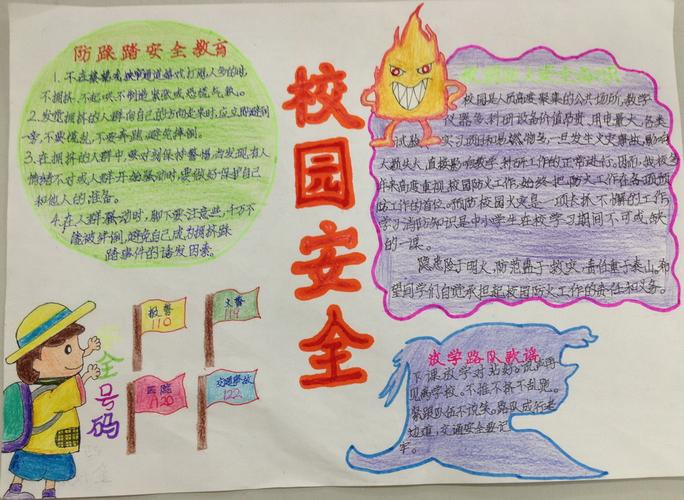 防踩踏安全教育
不拥挤、不起哄、不制造紧张或恐慌气氛。
2.发觉拥挤的人群向自己的方向走来时,应立即避到一
旁,不要慌乱,不要奔跑,避免摔倒。
3.在拥挤的人群中要时刻保持警惕,当发现有人
情绪不对或人群开始骚动时,要做好保护自己
和他人的准备。
4.在人群骚动时,脚下要注意些,千万不
能被绊倒,避免自己成为拥挤踩
踏事件的诱发因素。
校园安全
校园是人员高度聚集的公共场所,教学
仪器及科研设备价值昂贵,用电量大,各类
试教 实习用和易燃物多,一旦发生火灾事故,影响
人员头大,直接影响教学、科研工作的正常进行。因而,我校多
年来高度重视校园防火工作,始终把防火工作在各项预
防工作的首位。预防校园火灾是一项长抓不懈的工作,
学习消防知识是中小学生在校学习期间不可或缺
的一课。
隐患险于明火,防范胜于救灾,责任重于泰山。希
望同学们自觉承担起校园防火工作的责任和义务。
报警
110
火警
119
医院
120
交通事故
122
全
号
码
放学路队歌谣
下课放学对站好。说声再
见离学校。不推不挤不乱跑。
紧跟队伍不说笑。路队成行走
边道,交通安全要记
牢。